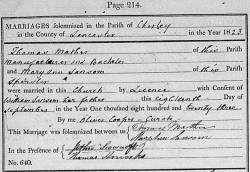 Page 214.
MARRIAGES solemnized in the Parish of Chorley
in the County of Lancaster in the Year 1823
Thomas Mather of this Parish
Manufacturer and Bachelor
and Mary Ann Sansom of this Parish
Spinster
were married in this Church by Licence with Consent of
William Sansom her father this eighteenth Day of
September in the Year One thousand eight hundred and twenty three
By me Oliver Cooper - Curate
This Marriage was solemnized between us Thomas Mather
Mary Ann Sansom
In the Presence of
Thomas
No. 640.